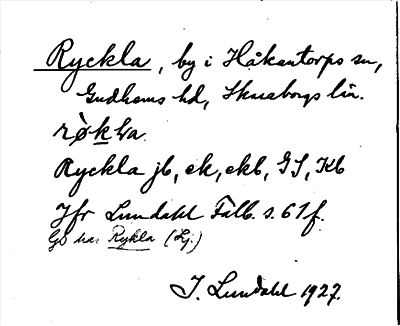 Ryckla, by i Håkantorps sn,
Gudhems hd, Skaraborgs län.
Ryckla jb, ek, ekb, GS, Kb
Jfr Lundahl Falb. s. 61 f.
GS har Rykla (Lj.)
I. Lundahl 1927.